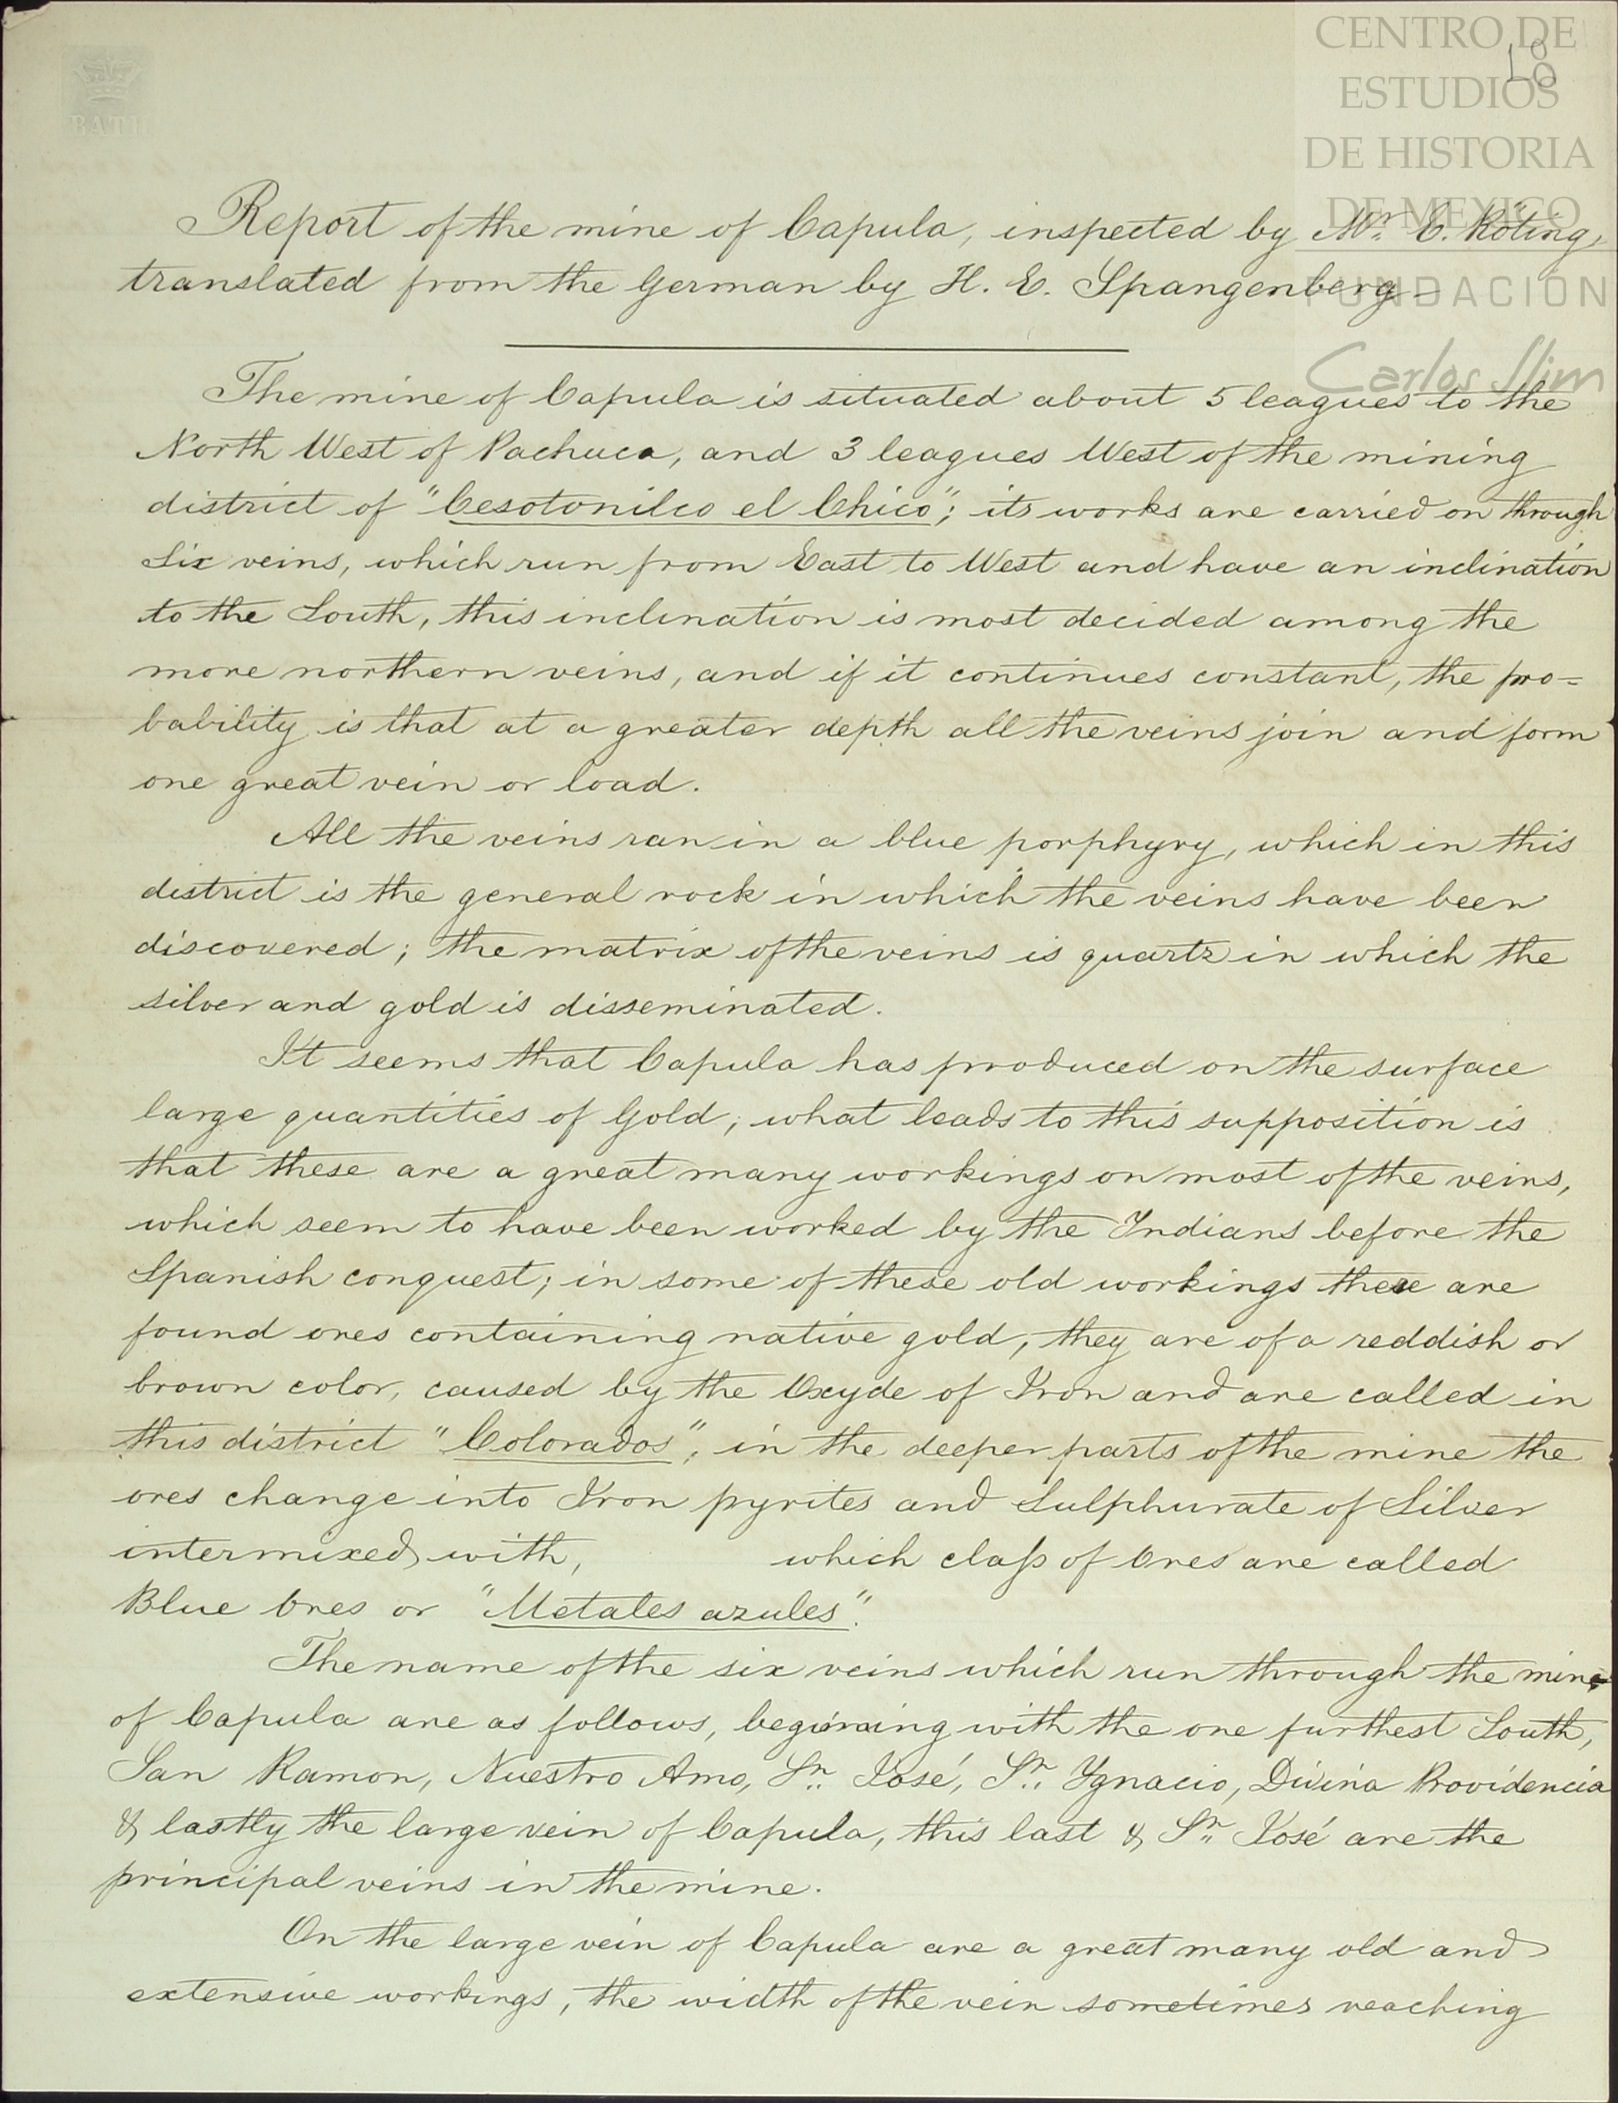 CENTRO DE
ESTUDIOS
DE HISTORIA
DE MEXICO
FUNDACIÓN
Carlos Slim
18
BATH
Report of the mine of Capula, inspected by Mr. C. Röting,
translated from the German by H. E. Spangenberg
The mine of Capula is situated about 5 leagues to the
North West of Pachuca, and 3 leagues West of the mining
district of "Cesotonilco el Chico"; its works are carried on through
Six veins, which run from East to West and have an inclination
to the South, this inclination is most decided among the
more northern veins, and if it continues constant, the pro=
bability is that at a greater depth all the veins join and form
one great vein or load.
All the veins ran in a blue porphyry, which in this
district is the general rock in which the veins have been
discovered; the matrix of the veins is quartz in which the
silver and gold is disseminated.
It seems that Capula has produced on the surface
large quantities of Gold; what leads to this supposition is
that these are a great many workings on most of the veins,
which seem to have been worked by the Indians before the
Spanish conquest; in some of these old workings there are
found ores containing native gold, they are of a reddish or
brown color, caused by the Oxyde of Iron and are called in
this district "Colorados"; in the deeper parts of the mine the
ores change into Iron pyrites and Sulphurate of Silver
intermixed with, which class of Ores are called
Blue Ores or "Metales azules".
The name of the six veins which run through the mine
of Capula are as follows, beginning with the one furthest South,
San Ramon, Nuestro Amo, Sn. José, Sn. Ygnacio, Divina Providencia
& lastly the large vein of Capula, this last & Sn. José are the
principal veins in the mine.
On the large vein of Capula are a great many old and
extensive workings, the width of the vein sometimes reaching